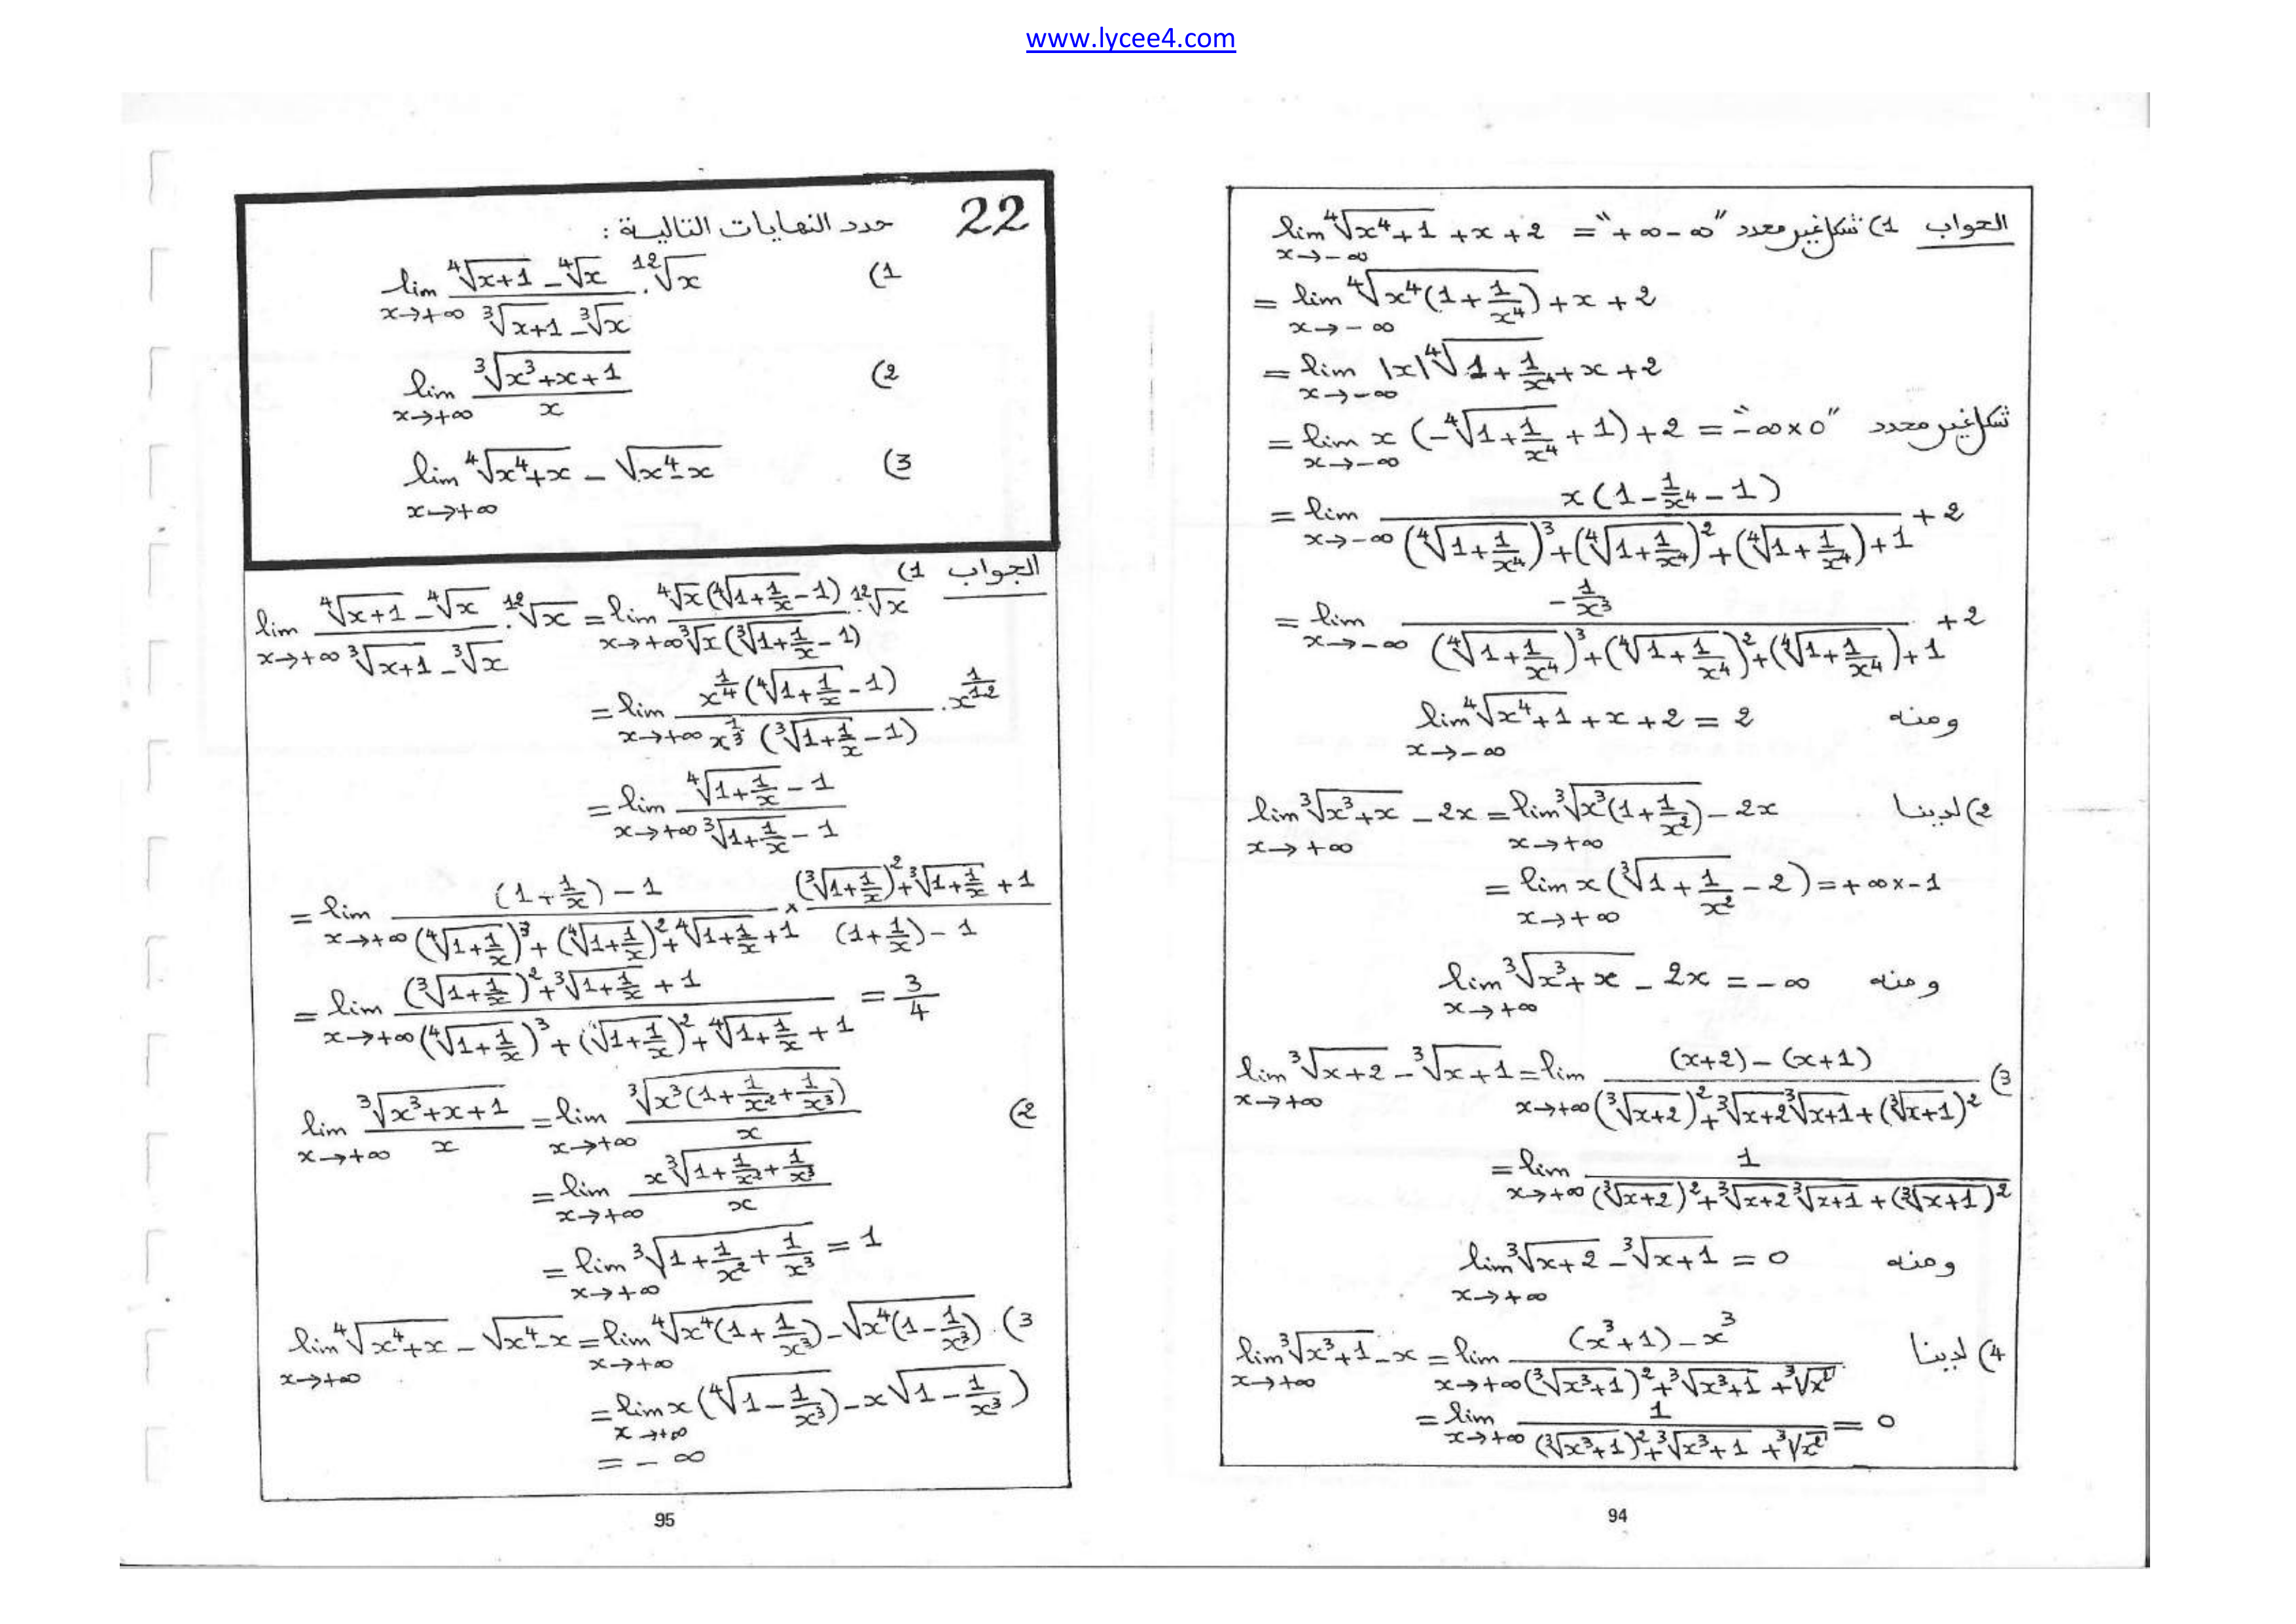 www.lycee4.com
الجواب 1) lim_{x→-∞} ⁴√(x⁴+1) + x + 2 = "+∞-∞" شكل غير محدد
= lim_{x→-∞} ⁴√(x⁴(1+1/x⁴)) + x + 2
= lim_{x→-∞} |x| ⁴√(1+1/x⁴) + x + 2
= lim_{x→-∞} x(-⁴√(1+1/x⁴) + 1) + 2 = "-∞×0" شكل غير محدد
= lim_{x→-∞} x(1-1/x⁴-1) / ((⁴√(1+1/x⁴))³+(⁴√(1+1/x⁴))²+(⁴√(1+1/x⁴))+1) + 2
= lim_{x→-∞} (-1/x³) / ((⁴√(1+1/x⁴))³+(⁴√(1+1/x⁴))²+(⁴√(1+1/x⁴))+1) + 2
ومنه lim_{x→-∞} ⁴√(x⁴+1) + x + 2 = 2
2) لدينا lim_{x→+∞} ³√(x³+x) - 2x = lim_{x→+∞} ³√(x³(1+1/x²)) - 2x
= lim_{x→+∞} x(³√(1+1/x²) - 2) = +∞×-1
ومنه lim_{x→+∞} ³√(x³+x) - 2x = -∞
3) lim_{x→+∞} ³√(x+2) - ³√(x+1) = lim_{x→+∞} ((x+2)-(x+1)) / ((³√(x+2))²+³√(x+2) ³√(x+1)+(³√(x+1))²)
= lim_{x→+∞} 1 / ((³√(x+2))²+³√(x+2) ³√(x+1)+(³√(x+1))²)
ومنه lim_{x→+∞} ³√(x+2) - ³√(x+1) = 0
4) لدينا lim_{x→+∞} ³√(x³+1) - x = lim_{x→+∞} ((x³+1)-x³) / ((³√(x³+1))²+³√(x³+1)+³√x²)
= lim_{x→+∞} 1 / ((³√(x³+1))²+³√(x³+1)+³√x²) = 0
94
22 حدد النهايات التالية :
1) lim_{x→+∞} (⁴√(x+1) - ⁴√x) / (³√(x+1) - ³√x) . ¹²√x
2) lim_{x→+∞} ³√(x³+x+1) / x
3) lim_{x→+∞} ⁴√(x⁴+x) - √(x⁴-x)
الجواب 1)
lim_{x→+∞} (⁴√(x+1) - ⁴√x) / (³√(x+1) - ³√x) . ¹²√x = lim_{x→+∞} ⁴√x(⁴√(1+1/x) - 1) / (³√x(³√(1+1/x) - 1)) . ¹²√x
= lim_{x→+∞} x^(1/4)(⁴√(1+1/x) - 1) / (x^(1/3)(³√(1+1/x) - 1)) . x^(1/12)
= lim_{x→+∞} (⁴√(1+1/x) - 1) / (³√(1+1/x) - 1)
= lim_{x→+∞} ((1+1/x) - 1) / ((⁴√(1+1/x))³+(⁴√(1+1/x))²+⁴√(1+1/x)+1) × ((³√(1+1/x))²+³√(1+1/x)+1) / ((1+1/x) - 1)
= lim_{x→+∞} ((³√(1+1/x))²+³√(1+1/x)+1) / ((⁴√(1+1/x))³+(√(1+1/x))²+⁴√(1+1/x)+1) = 3/4
2) lim_{x→+∞} ³√(x³+x+1) / x = lim_{x→+∞} ³√(x³(1+1/x²+1/x³)) / x
= lim_{x→+∞} x ³√(1+1/x²+1/x³) / x
= lim_{x→+∞} ³√(1+1/x²+1/x³) = 1
3) lim_{x→+∞} ⁴√(x⁴+x) - √(x⁴-x) = lim_{x→+∞} ⁴√(x⁴(1+1/x³)) - √(x⁴(1-1/x³)).
= lim_{x→+∞} x(⁴√(1-1/x³)) - x√(1-1/x³))
= -∞
95